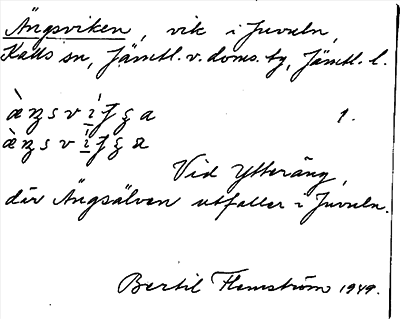 Ängsviken, vik i Juveln,
Kalls sn, Jämtl. v. doms. tg, Jämtl. l.
1.
Vid Ytteräng,
där Ängsälven utfaller i Juveln.
Bertil Flemström 1949.